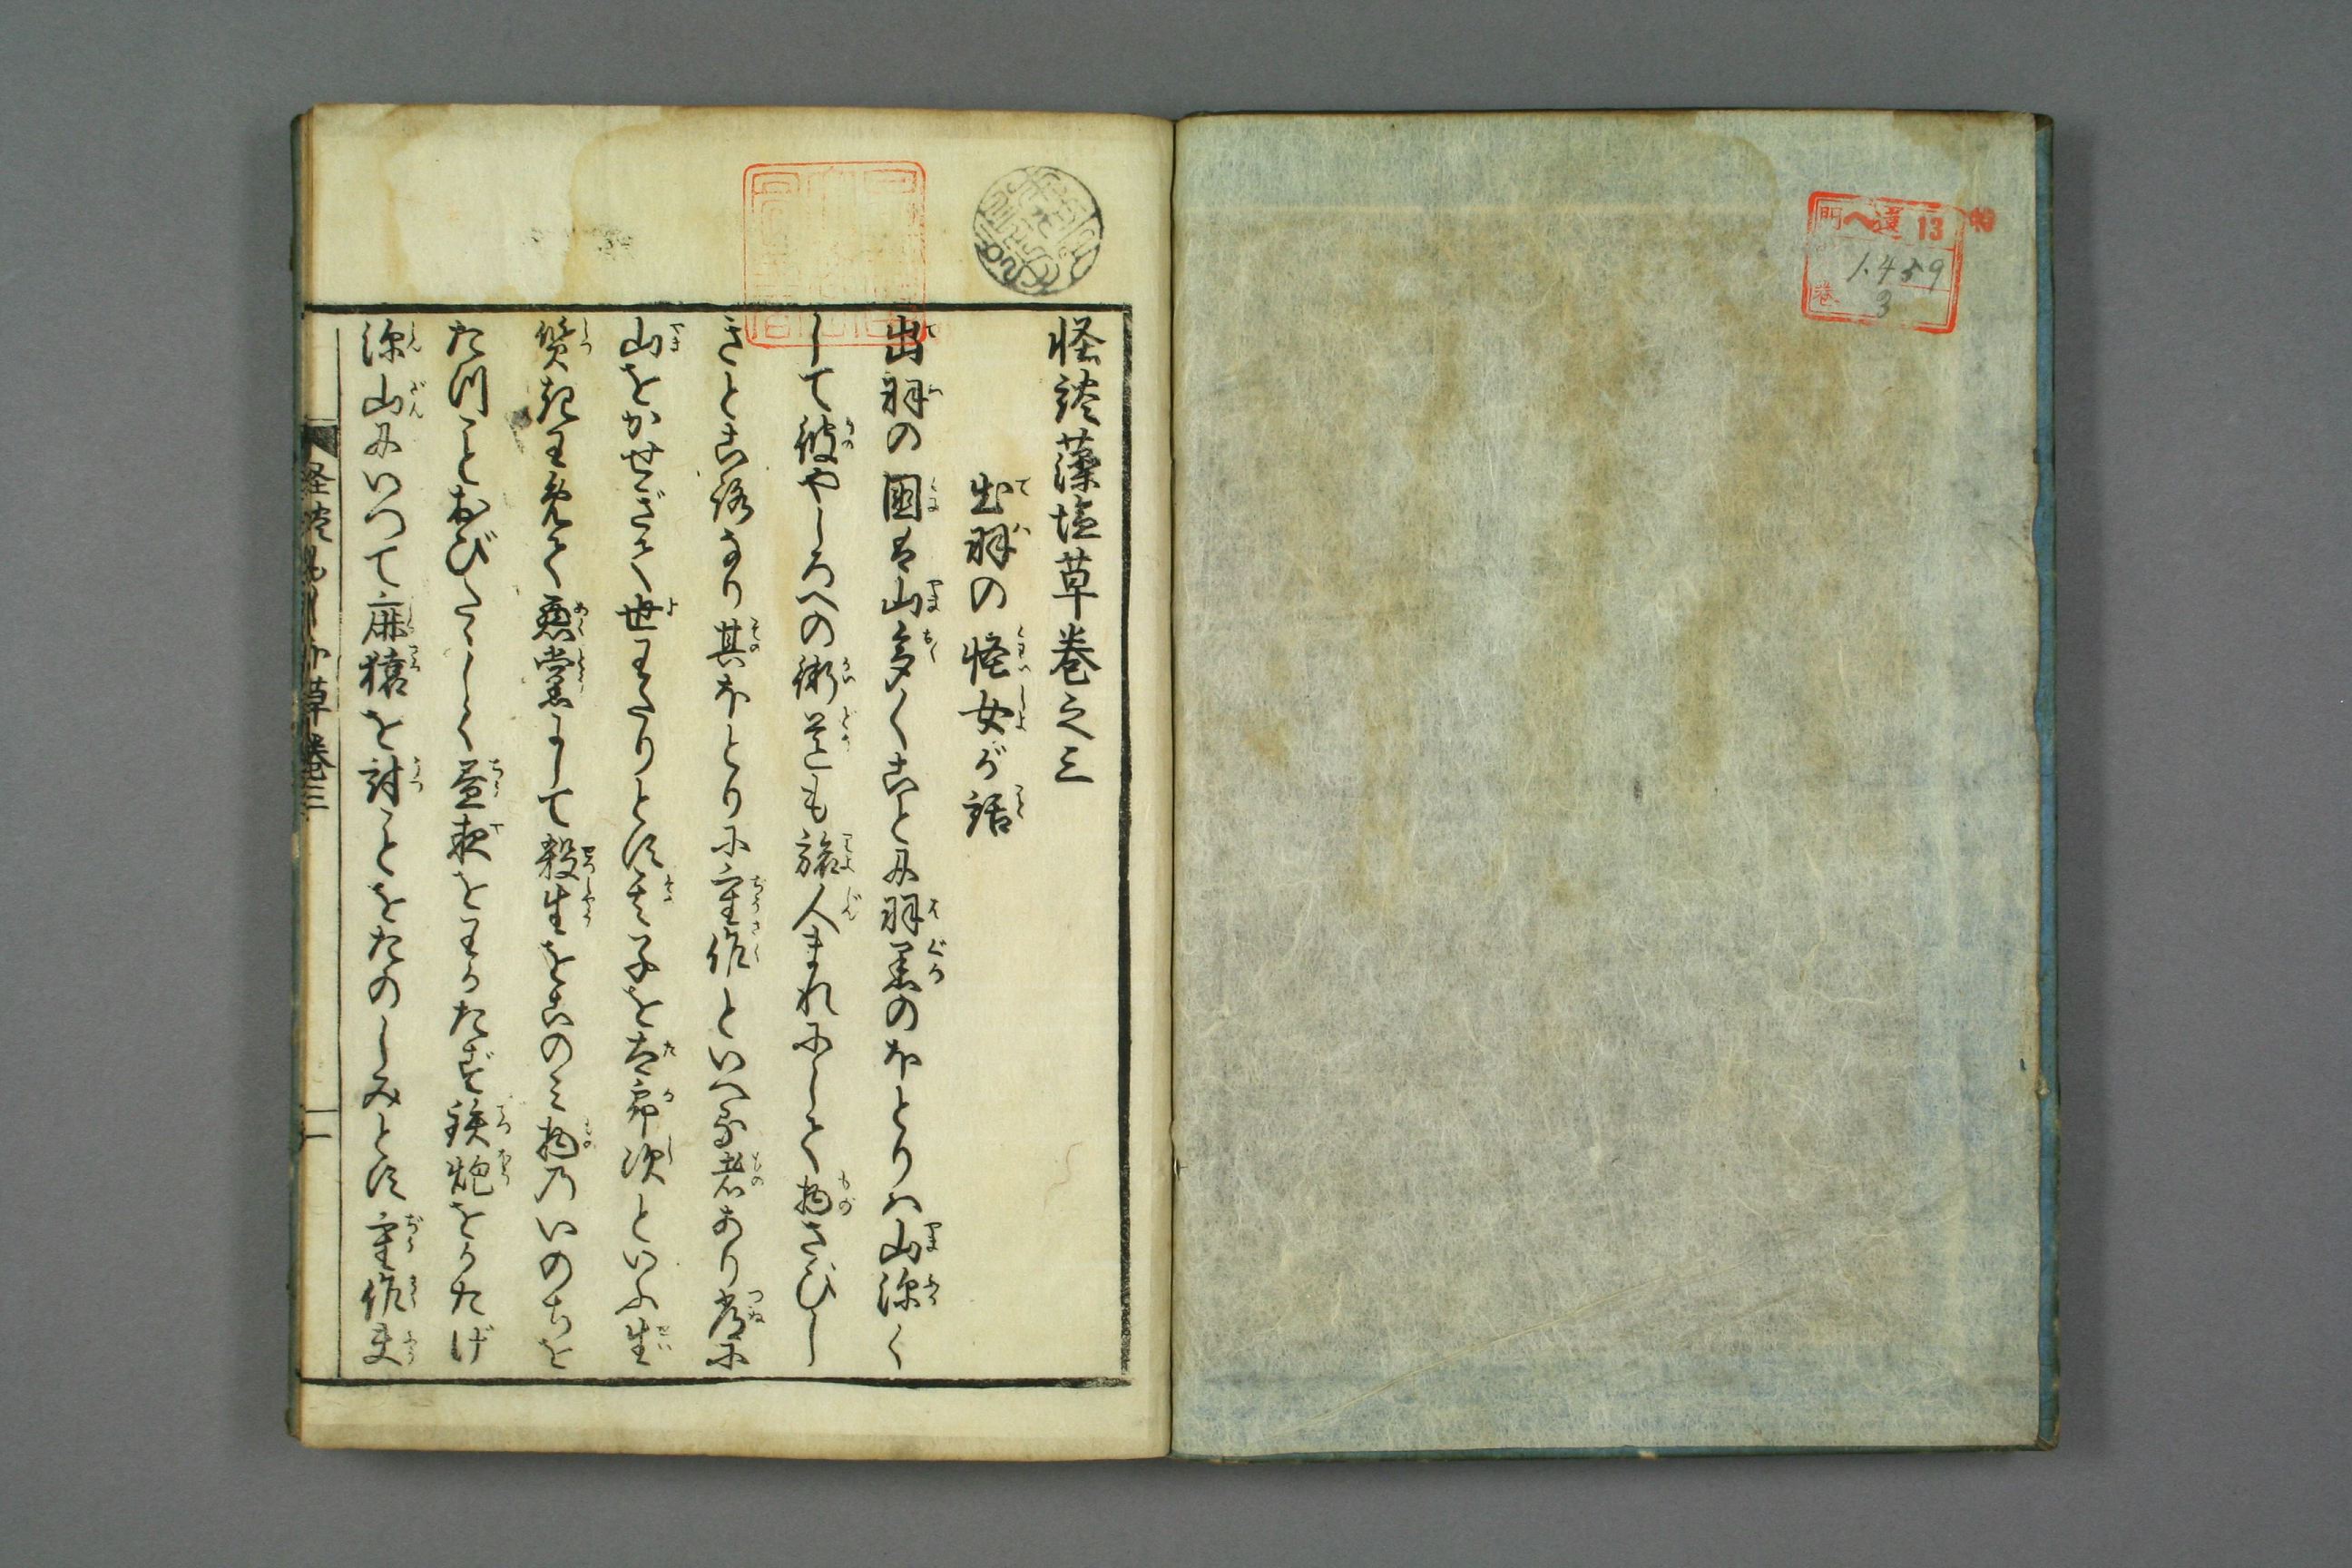 門 ヘ遺 13 特
1.459
巻 3
怪談藻塩草巻之三
出羽の怪女が話
出羽の國は山多くことに羽黒のほとりハ山深く
して彼やしろへの術道も旅人まれにして物さびし
きところなり其ほとりに重作といへる者あり常に
山をかせぎて世わたりとす其子を太郎次といふ生
質起王免て悪黨にして殺生をこのミ物のいのちを
たつことおびたゝしく昼夜をわかたず鉄炮をかたげ
深山にいつて麻猿を討ことをたのしみとす重作夫
怪談もしほ草巻三
一